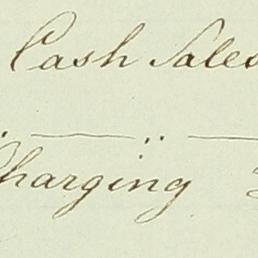 Cash Sales
Charging